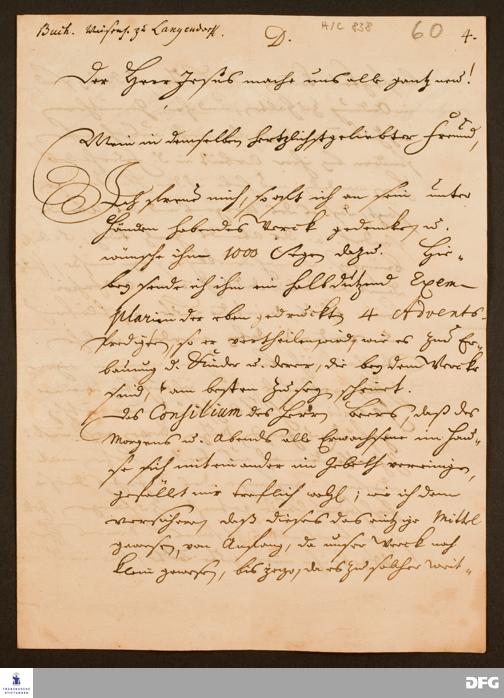 Buch. Waisenh. zu Langendorff. D. A/C 838 60 4.
Der Herr Jesus mache uns alle gantz neu!
Mein in demselben hertzlichstgeliebter Freund,
Ich freue mich, so oft ich an sein unter
Händen habendes Werck gedencke, u.
wünsche ihm 1000 Segen dazu. Hie-
bey sende ich ihm ein halb dutzend Exem-
plarien der eben gedruckten 4 Advents-
Predigten, so er vertheilen wird, wie es zur Er-
bauung d. Kinder u. derer, die bey dem Wercke
sind, am besten zu seyn scheinet.
Das Consilium des Herrn, daß des
Morgens u. Abends alle Erwachsene im Hau-
se sich mit einander im Gebeth vereinigen,
gefället mir trefflich wohl; wie ich denn
versichere, daß dieses das eintzige Mittel
gewesen, von Anfang, da unser Werck noch
klein gewesen, bis jetzo, da es zu solcher Weit-
FRANCKESCHE
STIFTUNGEN
DFG